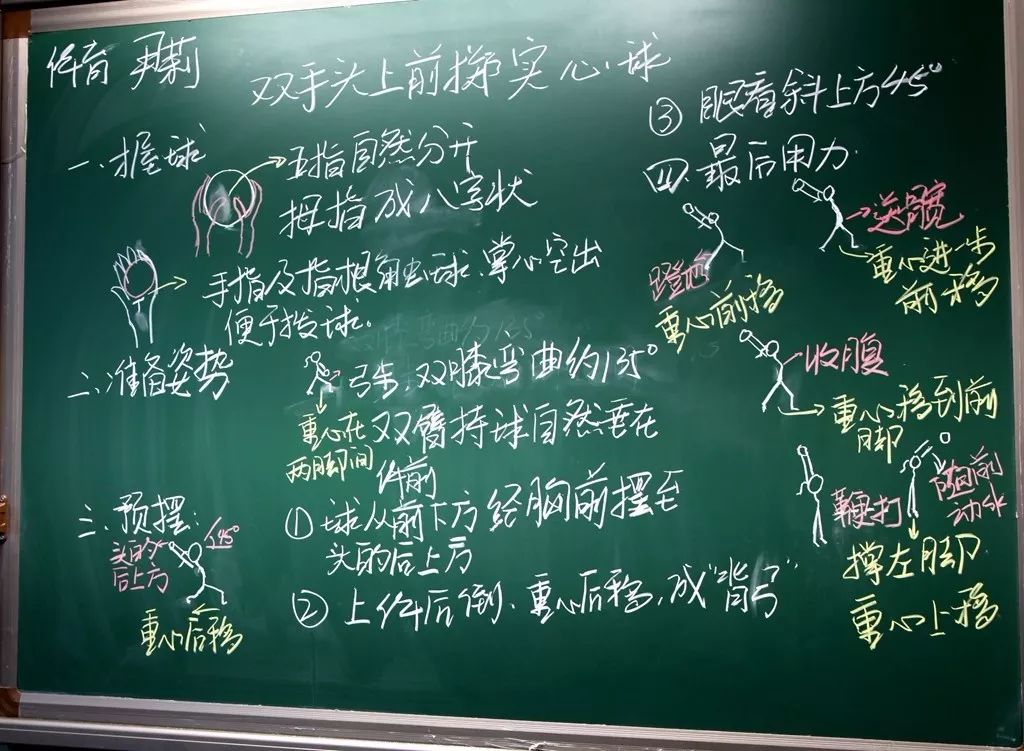 体育 尹莉
双手头上前掷实心球
一、握球
五指自然分开
拇指成八字状
手指及指根触球、掌心空出
便于拨球。
二、准备姿势
弓步 双膝弯曲约135°
双臂持球自然垂在
体前
重心在
两脚间
三、预摆:
头的
后上方
45°
重心后移
① 球从前下方经胸前摆至
头的后上方
② 上体后倒、重心后移,成“背弓”
③ 眼看斜上方45°
四、最后用力
蹬地
重心前移
送髋
重心进一步
前移
收腹
重心移到前
脚
鞭打
随前
动作
撑左脚
重心上移